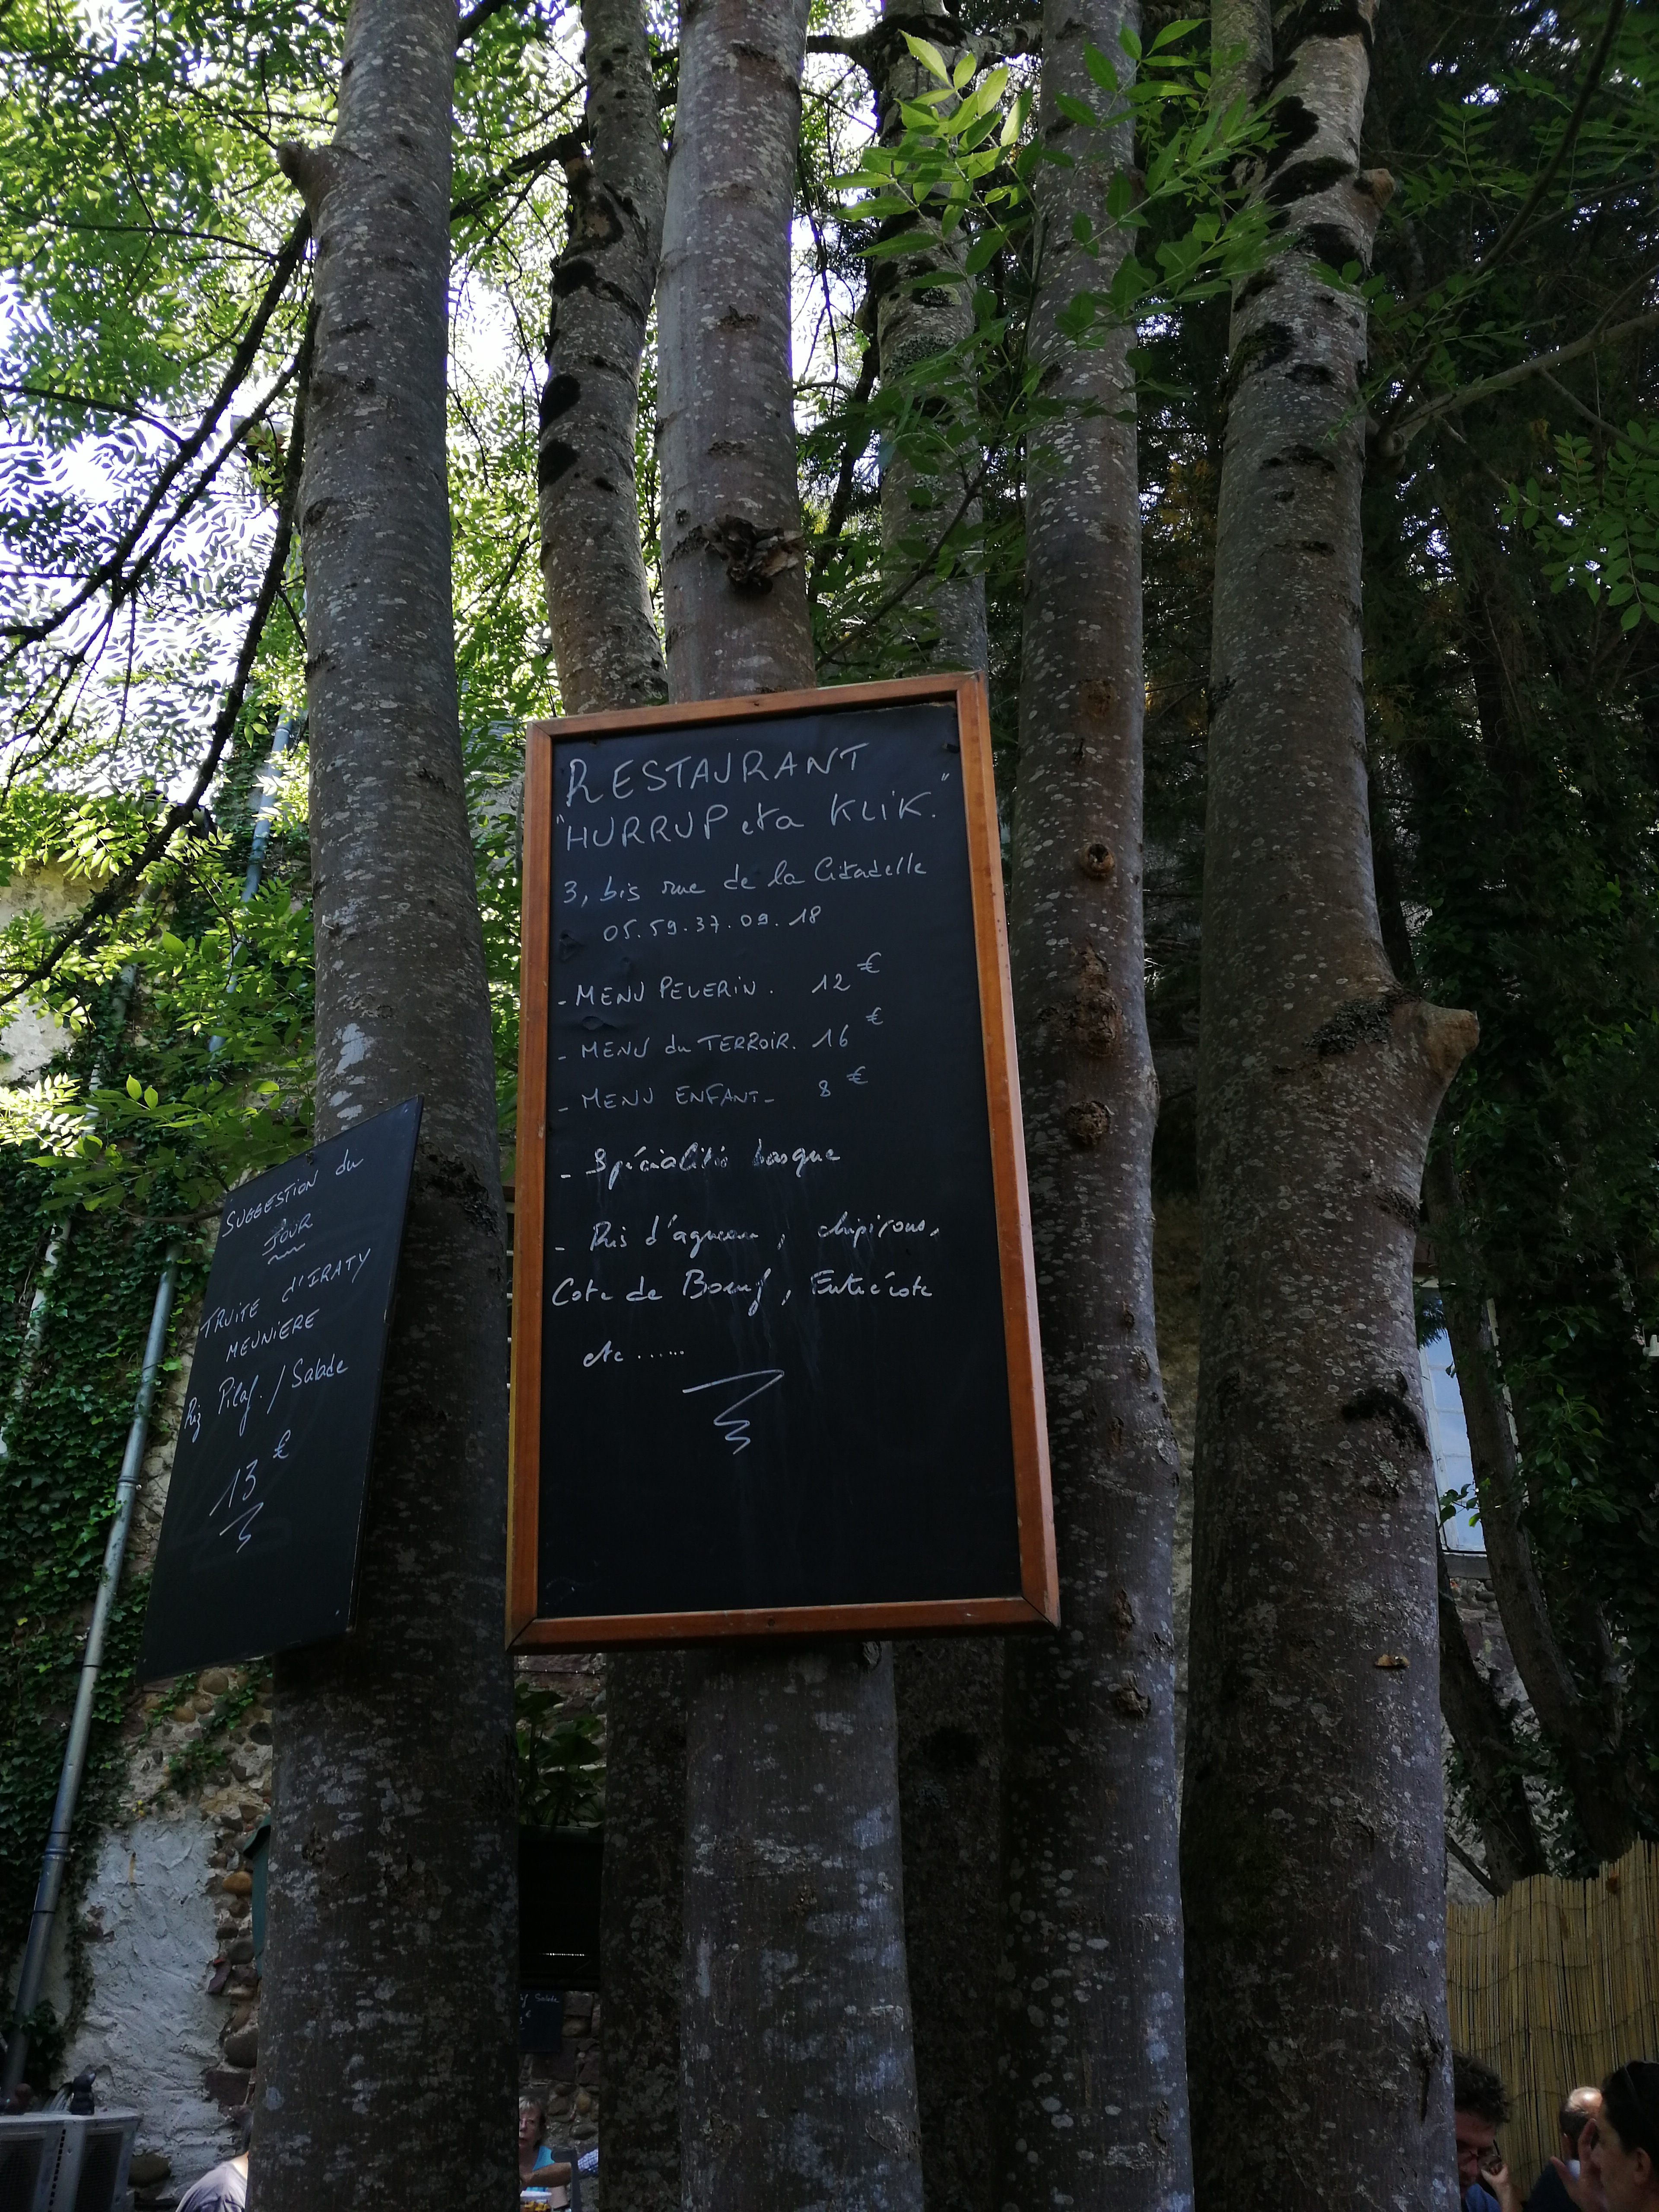 RESTAURANT
"HURRUP eta KLIK."
3, bis rue de la Citadelle
05.59.37.09.18
- MENU PELERIN. 12 €
- MENU du TERROIR. 16 €
- MENU ENFANT - 8 €
- Spécialités basque
- Ris d'agneau, chipirons,
Cote de Boeuf, Entrecôte
etc ......
SUGGESTION du
JOUR
TRUITE d'IRATY
MEUNIERE
Riz Pilaf. / Salade
13 €
Salade